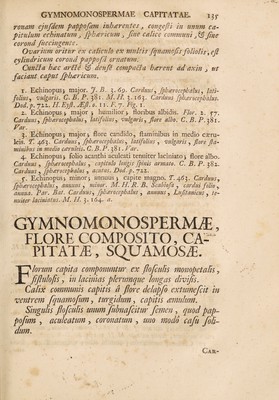 GYMNOMONOSPERMÆ CAPITATÆ. 135
ronam ejusdem papposam inhærentes, congesti in unum ca-
pitulum echinatum, sphæricum, sine calice communi, & sine
corona succingente.
Ovarium oritur ex caliculi ex multis squamosis foliolis, est
cylindricum corona papposa ornatum.
Cuncta hæc arcte & dense compacta hærent ad axin, ut
faciant caput sphæricum.
1. Echinopus; major. J. B. 3. 69. Carduus, sphærocephalus, lati-
folius, vulgaris. C. B. P. 381. M. H. 3. 163. Carduus sphærocephalus.
Dod. p. 722. H. Eyst. Æst. o. 11. F. 7. Fig. 1.
2. Echinopus; major; humilior; floribus albidis. Flor. 2. 57.
Carduus, sphærocephalus, latifolius, vulgaris, flore albo. C. B. P. 381.
Var.
3. Echinopus; major; flore candido, staminibus in medio cæru-
leis. T. 463. Carduus, sphærocephalus, latifolius, vulgaris, flore sta-
minibus in medio cæruleis. C. B. P. 381. Var.
4. Echinopus; folio acanthi aculeati tenuiter laciniato; flore albo.
Carduus, sphærocephalus, capitulo longis spinis armato. C. B. P. 382.
Carduus, sphærocephalus, acutus. Dod. p. 722.
5. Echinopus; minor; annuus; capite magno. T. 463. Carduus,
sphærocephalus, annuus, minor. M. H. R. B. Scabiosa, cardui folio,
annua. Par. Bat. Carduus, sphærocephalus, annuus, Lusitanicus, te-
nuiter laciniatus. M. H. 3. 164. 0.
GYMNOMONOSPERMÆ,
FLORE COMPOSITO, CA-
PITATÆ, SQUAMOSÆ.
Florum capita componuntur ex flosculis monopetalis,
fistulosis, in lacinias plerumque longas divisis.
Calix communis capitis a flore delapso extumescit in
ventrem squamosum, turgidum, capitis æmulum.
Singulis flosculis unum subnascitur semen, quod pap-
posum, aculeatum, coronatum, uno modo casu soli-
dum.
CAR-